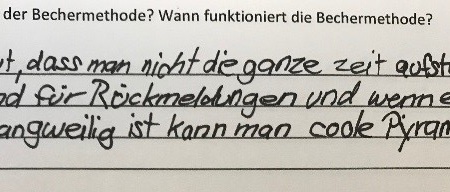 der Bechermethode? Wann funktioniert die Bechermethode?
dass man nicht die ganze zeit aufst
für Röckmeldungen und wenn e
angweilig ist kann man coole Pyram